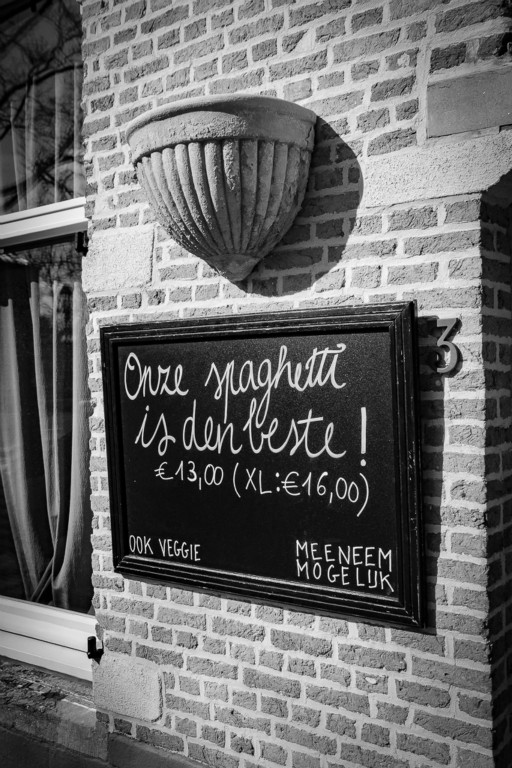 Onze spaghetti
is den beste!
€13,00 (XL:€16,00)
OOK VEGGIE
MEENEEM
MOGELIJK
3